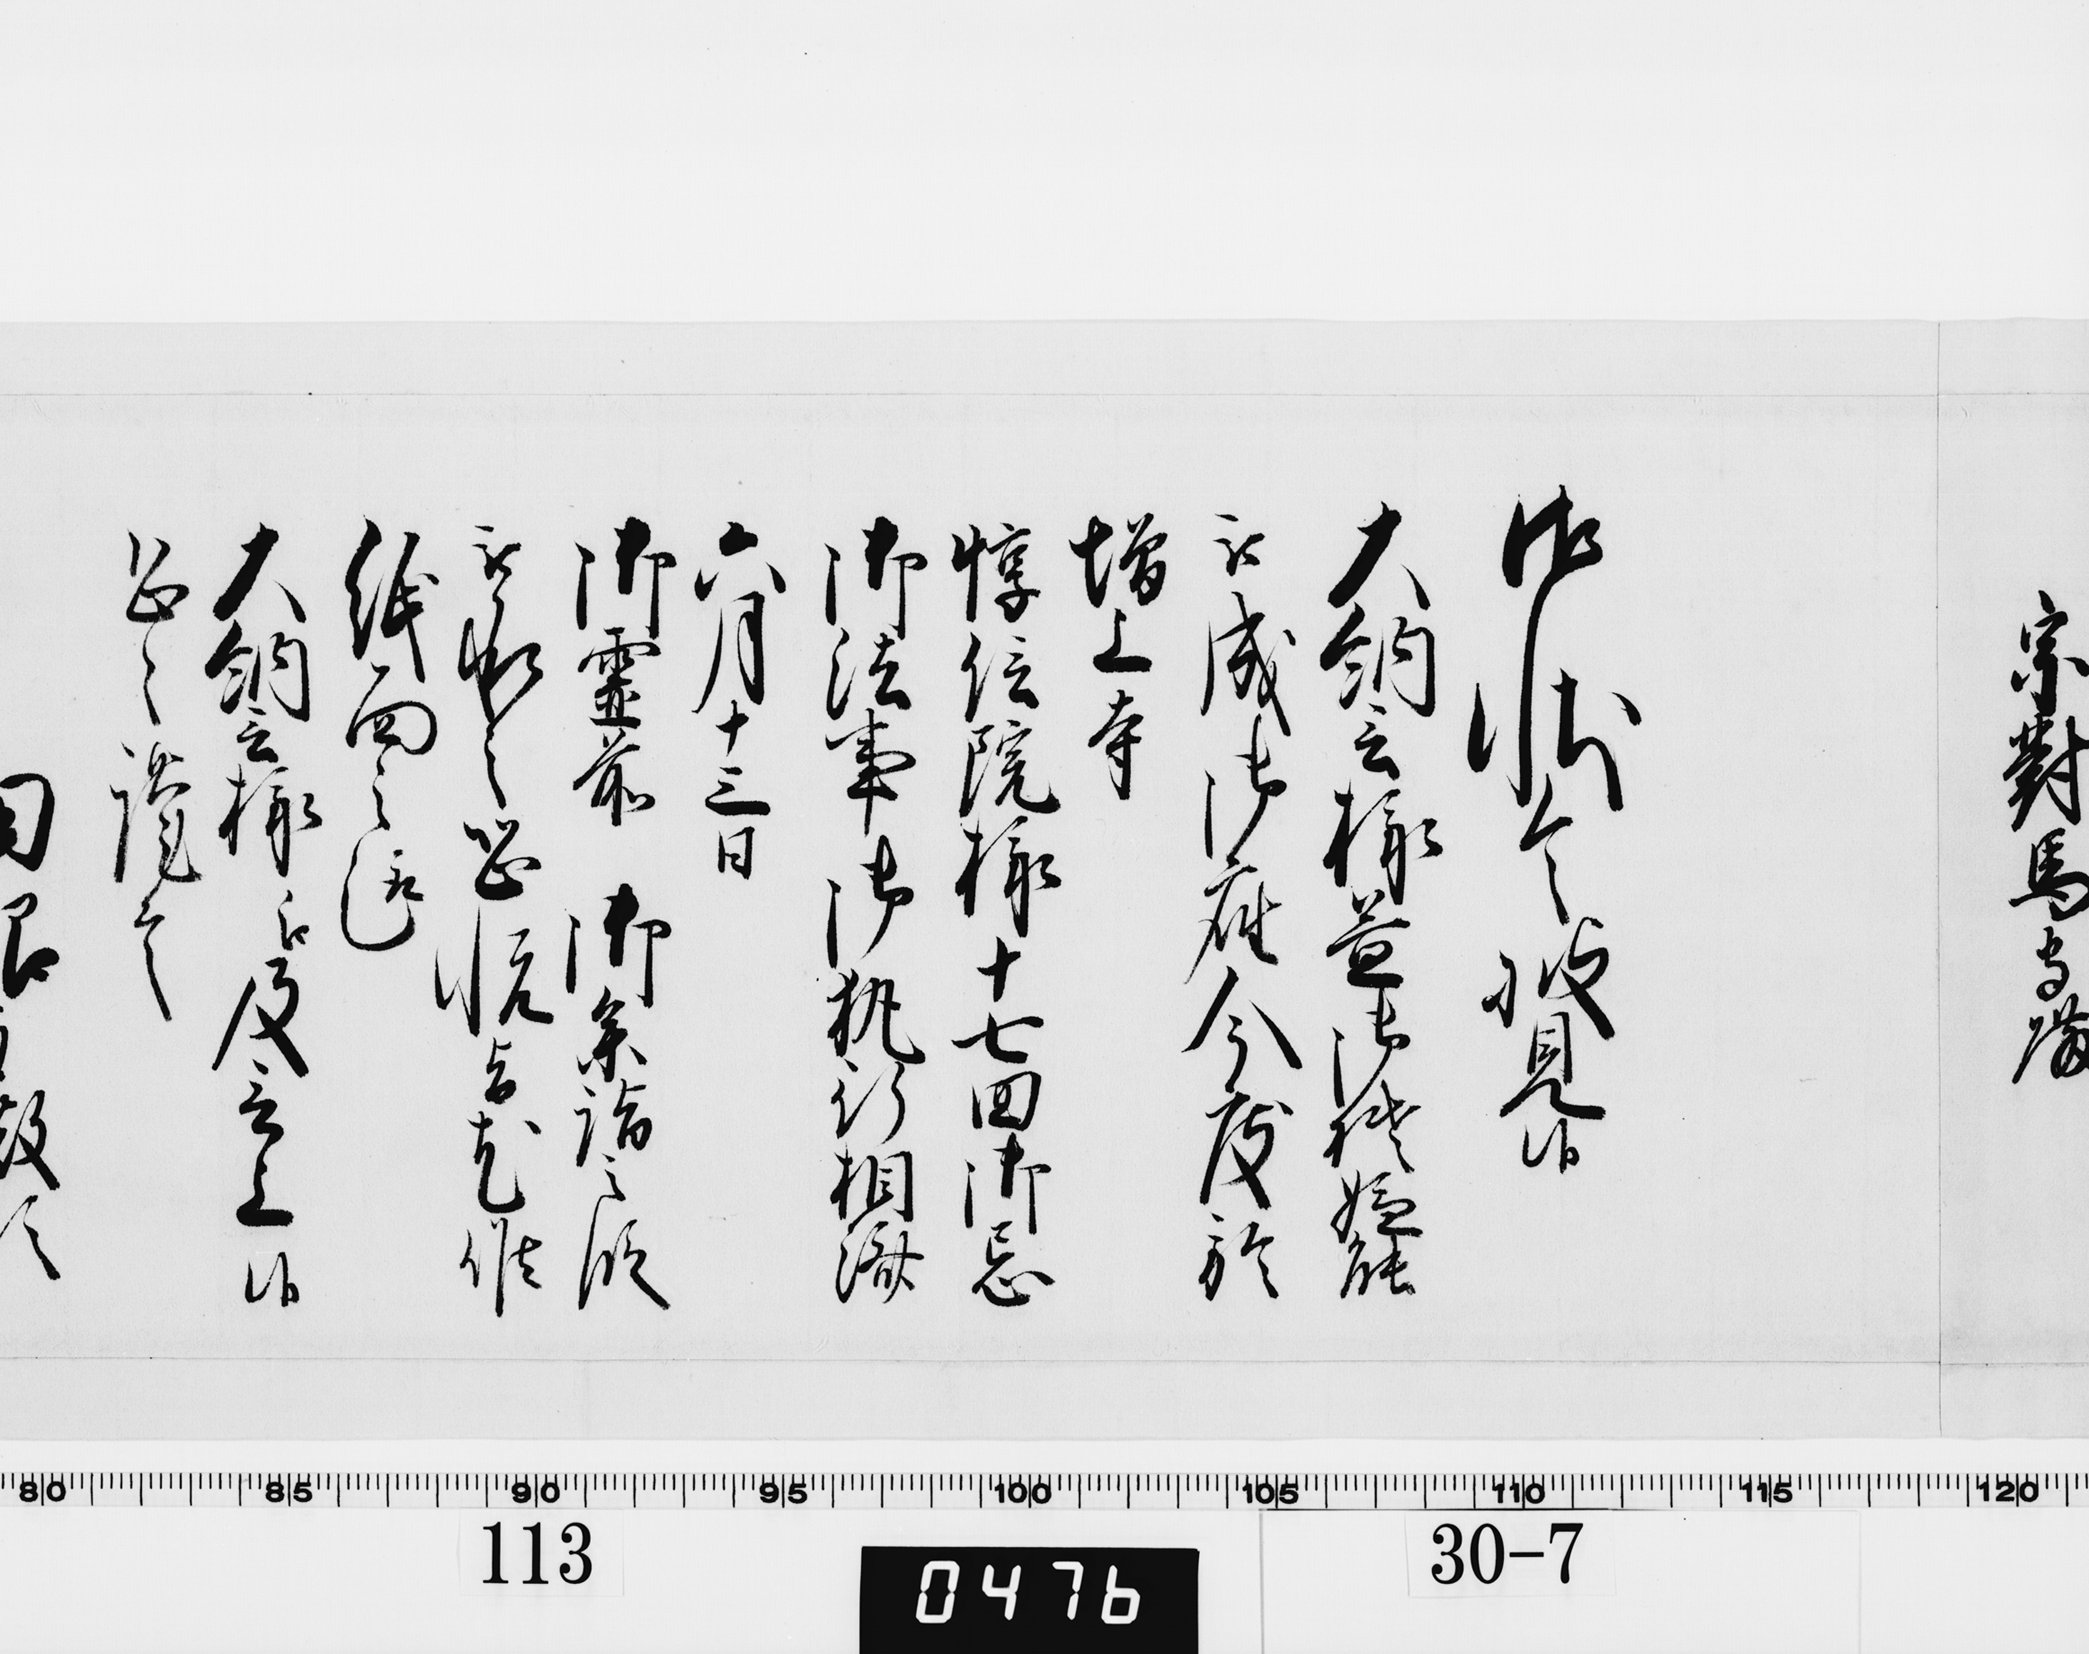 宗對馬守
御状令披見候
大納言様益御機嫌能
被成御座今度於
増上寺
惇信院様十七回御忌
御法事御執行相済
六月十三日
御靈前 御参詣之段
被承之恐悦旨尤候
紙面之趣
大納言様江及言上候
恐々謹言
80 85 90 95 100 105 110 115 120
113
30-7
0476